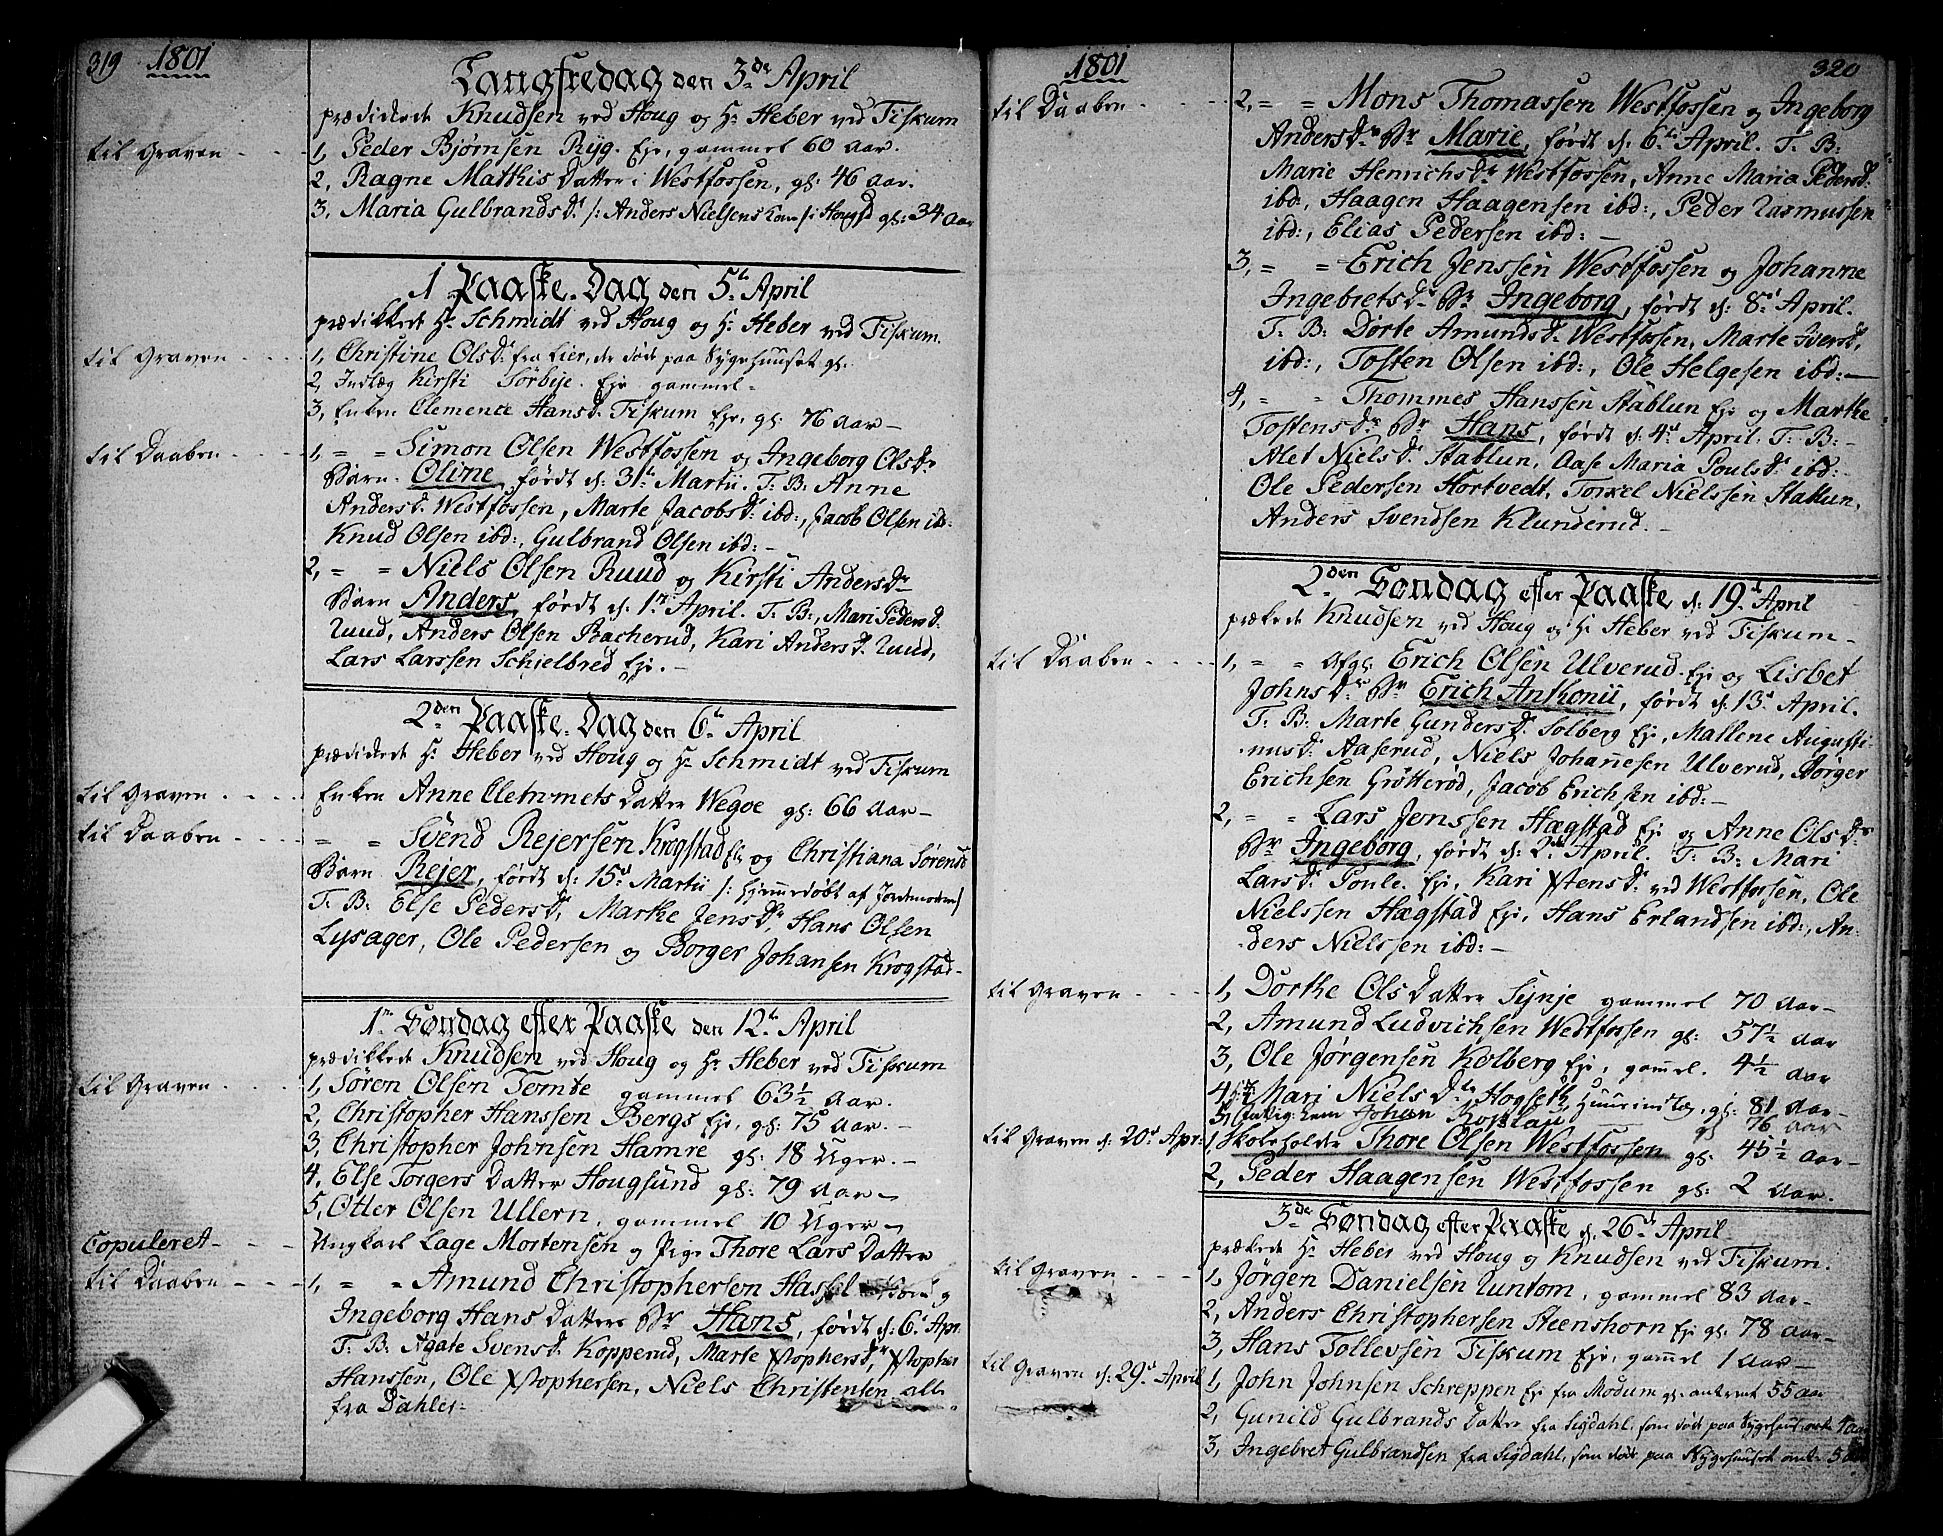 319 1801
Langfredag den 3de April
prædickede Knudsen ved Houg og Hr Heber ved Fiskum
til Graven
1, Peder Bjørnsen Ryg. Eje, gammel 60 Aar.
2, Ragne Mathis Datter i Westfossen, gl: 46 Aar.
3, Maria Gulbrandsdr /: Anders Nielsens Kone /: Hougsd gl: 34 Aar
1 Paaske-Dag den 5te April
prædikkede Hr Schmidt ved Houg og Hr Heber ved Fiskum.
til Graven
1, Christine Olsdr fra Lier, de døde paa Sygehuuset gl:
2, Indlæg Kirsti Sørbije. Eje gammel -
3, Enken Clemence Hansdr Fiskum Eje, gl: 76 Aar -
til Daaben
1, = = Simon Olsen Westfossen og Ingeborg Olsdr
Barn. Oline, født d: 31te Martii. F: B: Anne
Andersdr Westfossen, Marte Jacobsdr ibd:, Jacob Olsen ib:
Knud Olsen ibd:, Gulbrand Olsen ibd: -
2, = = Niels Olsen Ruud og Kirsti Andersdr
Barn Anders, født d: 1te April. F: B:, Mari Pedersd.
Ruud, Anders Olsen Bacherud, Kari Andersdr Ruud,
Lars Larssen Schielbred Eje. -
2den Paaske-Dag den 6te April
prædickede Hr Heber ved Houg og Hr Schmidt ved Fiskum
til Graven
Enken Anne Clemmets Datter Wegoe gl: 66 Aar -
til Daaben
= = Svend Rejersen Krogstad Eje og Christiana Sørensd
Barn Rejer, født d: 15de Martii /: hjemmedøbt af Jordemoderen /
F: B: Else Pedersdr, Marthe Jensdr, Hans Olsen
Lysager, Ole Pedersen og Borger Johansen Krogstad -
1te Søndag efter Paaske den 12te April
prædikkede Knudsen ved Houg og Hr Heber ved Fiskum
til Graven
1, Søren Olsen Tomte gammel 63½ Aar.
2, Christopher Hanssen Bergs Eje, gl: 75 Aar. -
3, Christopher Johnsen Hamre gl: 18 Uger. -
4, Else Torgers Datter Hougsund gl: 79 Aar -
5, Otter Olsen Ullern, gammel 10 Uger -
Copuleret -
Ungkarl Lage Mortensen og Pige Thore Lars Datter
til Daaben
1, = = Amund Christophersen Hassel og
Ingeborg Hans Datters Br Hans, født d: 6te Apr.
F: B: Agate Svensdr Kopperud, Marte Xstophersdr, Xstopher
Hanssen, Ole Xstophersen, Niels Christensen alle
fra Dahler -
1801 320
til Daaben
2, = = Mons Thomassen Westfossen og Ingeborg
Andersdr Br Marie, født d: 6te April. F: B:
Marie Henrichsdr Westfossen, Anne Maria Pedersd:
ibd:, Haagen Haagensen ibd:, Peder Rasmussen
ibd:, Elias Pedersen ibd: -
3, = = Erich Jenssen Westfossen og Johanne
Ingebretsdr Br Ingeborg, født d: 8de April.
F: B: Dorte Amundsdr Westfossen, Marte Iversd,
ibd:, Tosten Olsen ibd:, Ole Helgesen ibd: -
4, = = Thommes Hanssen Stablun Eje og Marthe
Tostensdr Br Hans, født d: 4de April. F: B: -
Alet Nielsdr Stablun, Aase Maria Poulsdr ibd: -
Ole Pedersen Hortvedt, Torkel Nielssen Stablun,
Anders Svendsen Klunderud. -
2den Søndag efter Paaske d: 19de April
prækede Knudsen ved Houg og Hr Heber ved Fiskum -
til Daaben
1, = = Afgl. Erich Olsen Ulverud Eje og Lisbet
Johnsdr Br Erich Anthonii, født d: 13de April.
F: B: Marte Gundersdr Solberg Eje, Mallene Augusti-
nusdr Aaserud, Niels Johanesen Ulverud, Børger
Erichsen Grøtterød, Jacob Erichsen ibd: -
2, = = Lars Jenssen Hægstad Eje og Anne Olsdr
Br Ingeborg, født d: 2den April. F: B: Mari
Larsdr Poule. Eje, Kari Xstensdr ved Westfossen, Ole
Nielssen Hægstad Eje, Hans Erlandsen ibd:, An-
ders Nielssen ibd: -
til Graven
1, Dorthe Ols Datter Synje gammel 70 Aar -
2, Amund Ludvichsen Westfossen gl: 57½ Aar
3, Ole Jørgensen Kolberg Eje, gammel 4½ Aar
4, Mari Nielsdr Hogseth, Huusindlæg, gl: 81 Aar -
5, Johan gl 76 Aar
til Graven d: 20de Apr:
1, Skoleholder Thore Olsen Westfossen gl: 45½ Aar -
2, Peder Haagensen Westfossen gl: 2 Aar.
3de Søndag efter Paaske d. 26de April
prækede Hr Heber ved Houg og Knudsen ved Fiskum.
til Graven
1, Jørgen Danielsen Runtom, gammel 83 Aar -
2, Anders Christophersen Steenshorn Eje gl: 78 Aar -
3, Hans Tollevsen Fiskum Eje, gammel 1 Aar -
til Graven d: 29de April
1, John Johnsen Schreppen Eje fra Modum gl: antrent 55 Aar
2, Gunild Gulbrands Datter fra Sigdahl, som døde paa Sygehuus 4 Aar
3, Ingebret Gulbrandsen fra Sigdahl, som døde paa Sygehuuset 5